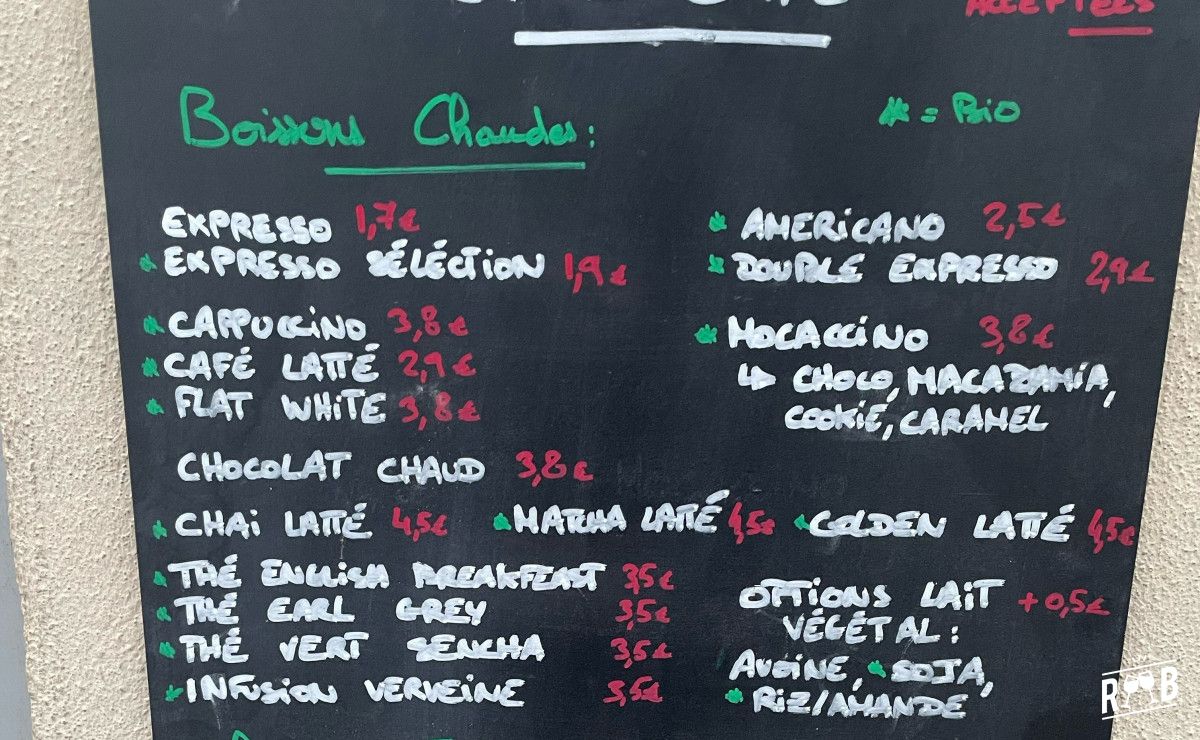 ACCEPTÉES
Boissons Chaudes :
* = Bio
EXPRESSO 1,7€
* EXPRESSO SÉLÉCTION 1,9€
* CAPPUCCINO 3,8€
* CAFÉ LATTÉ 2,9€
* FLAT WHITE 3,8€
CHOCOLAT CHAUD 3,8€
* AMERICANO 2,5€
* DOUBLE EXPRESSO 2,9€
* MOCACCINO 3,8€
↳ CHOCO, MACADAMIA,
COOKIE, CARAMEL
* CHAI LATTÉ 4,5€ * MATCHA LATTÉ 4,5€ * GOLDEN LATTÉ 4,5€
* THÉ ENGLISH BREAKFEAST 3,5€
* THÉ EARL GREY 3,5€
* THÉ VERT SENCHA 3,5€
* INFUSION VERVEINE 3,5€
OPTIONS LAIT + 0,5€
VÉGÉTAL :
AVOINE, * SOJA,
* RIZ/AMANDE
R B